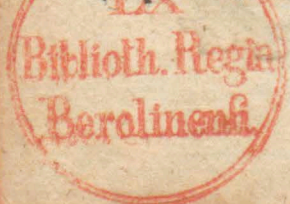 EX
Biblioth. Regia
Berolinensi.